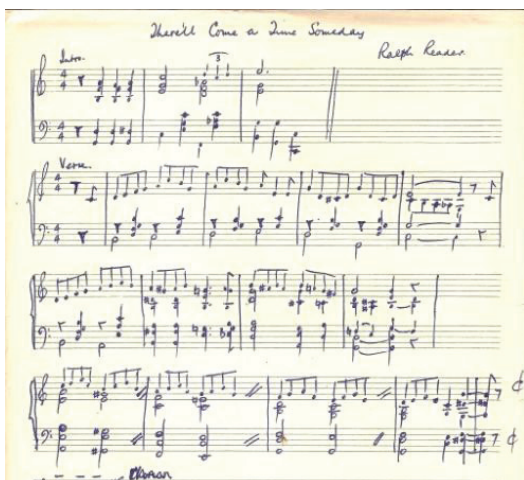 There'll Come a Time Someday
Ralph Reader.
Intro.
3
4
4
4
4
Verse.
4
4
4
4
Chorus